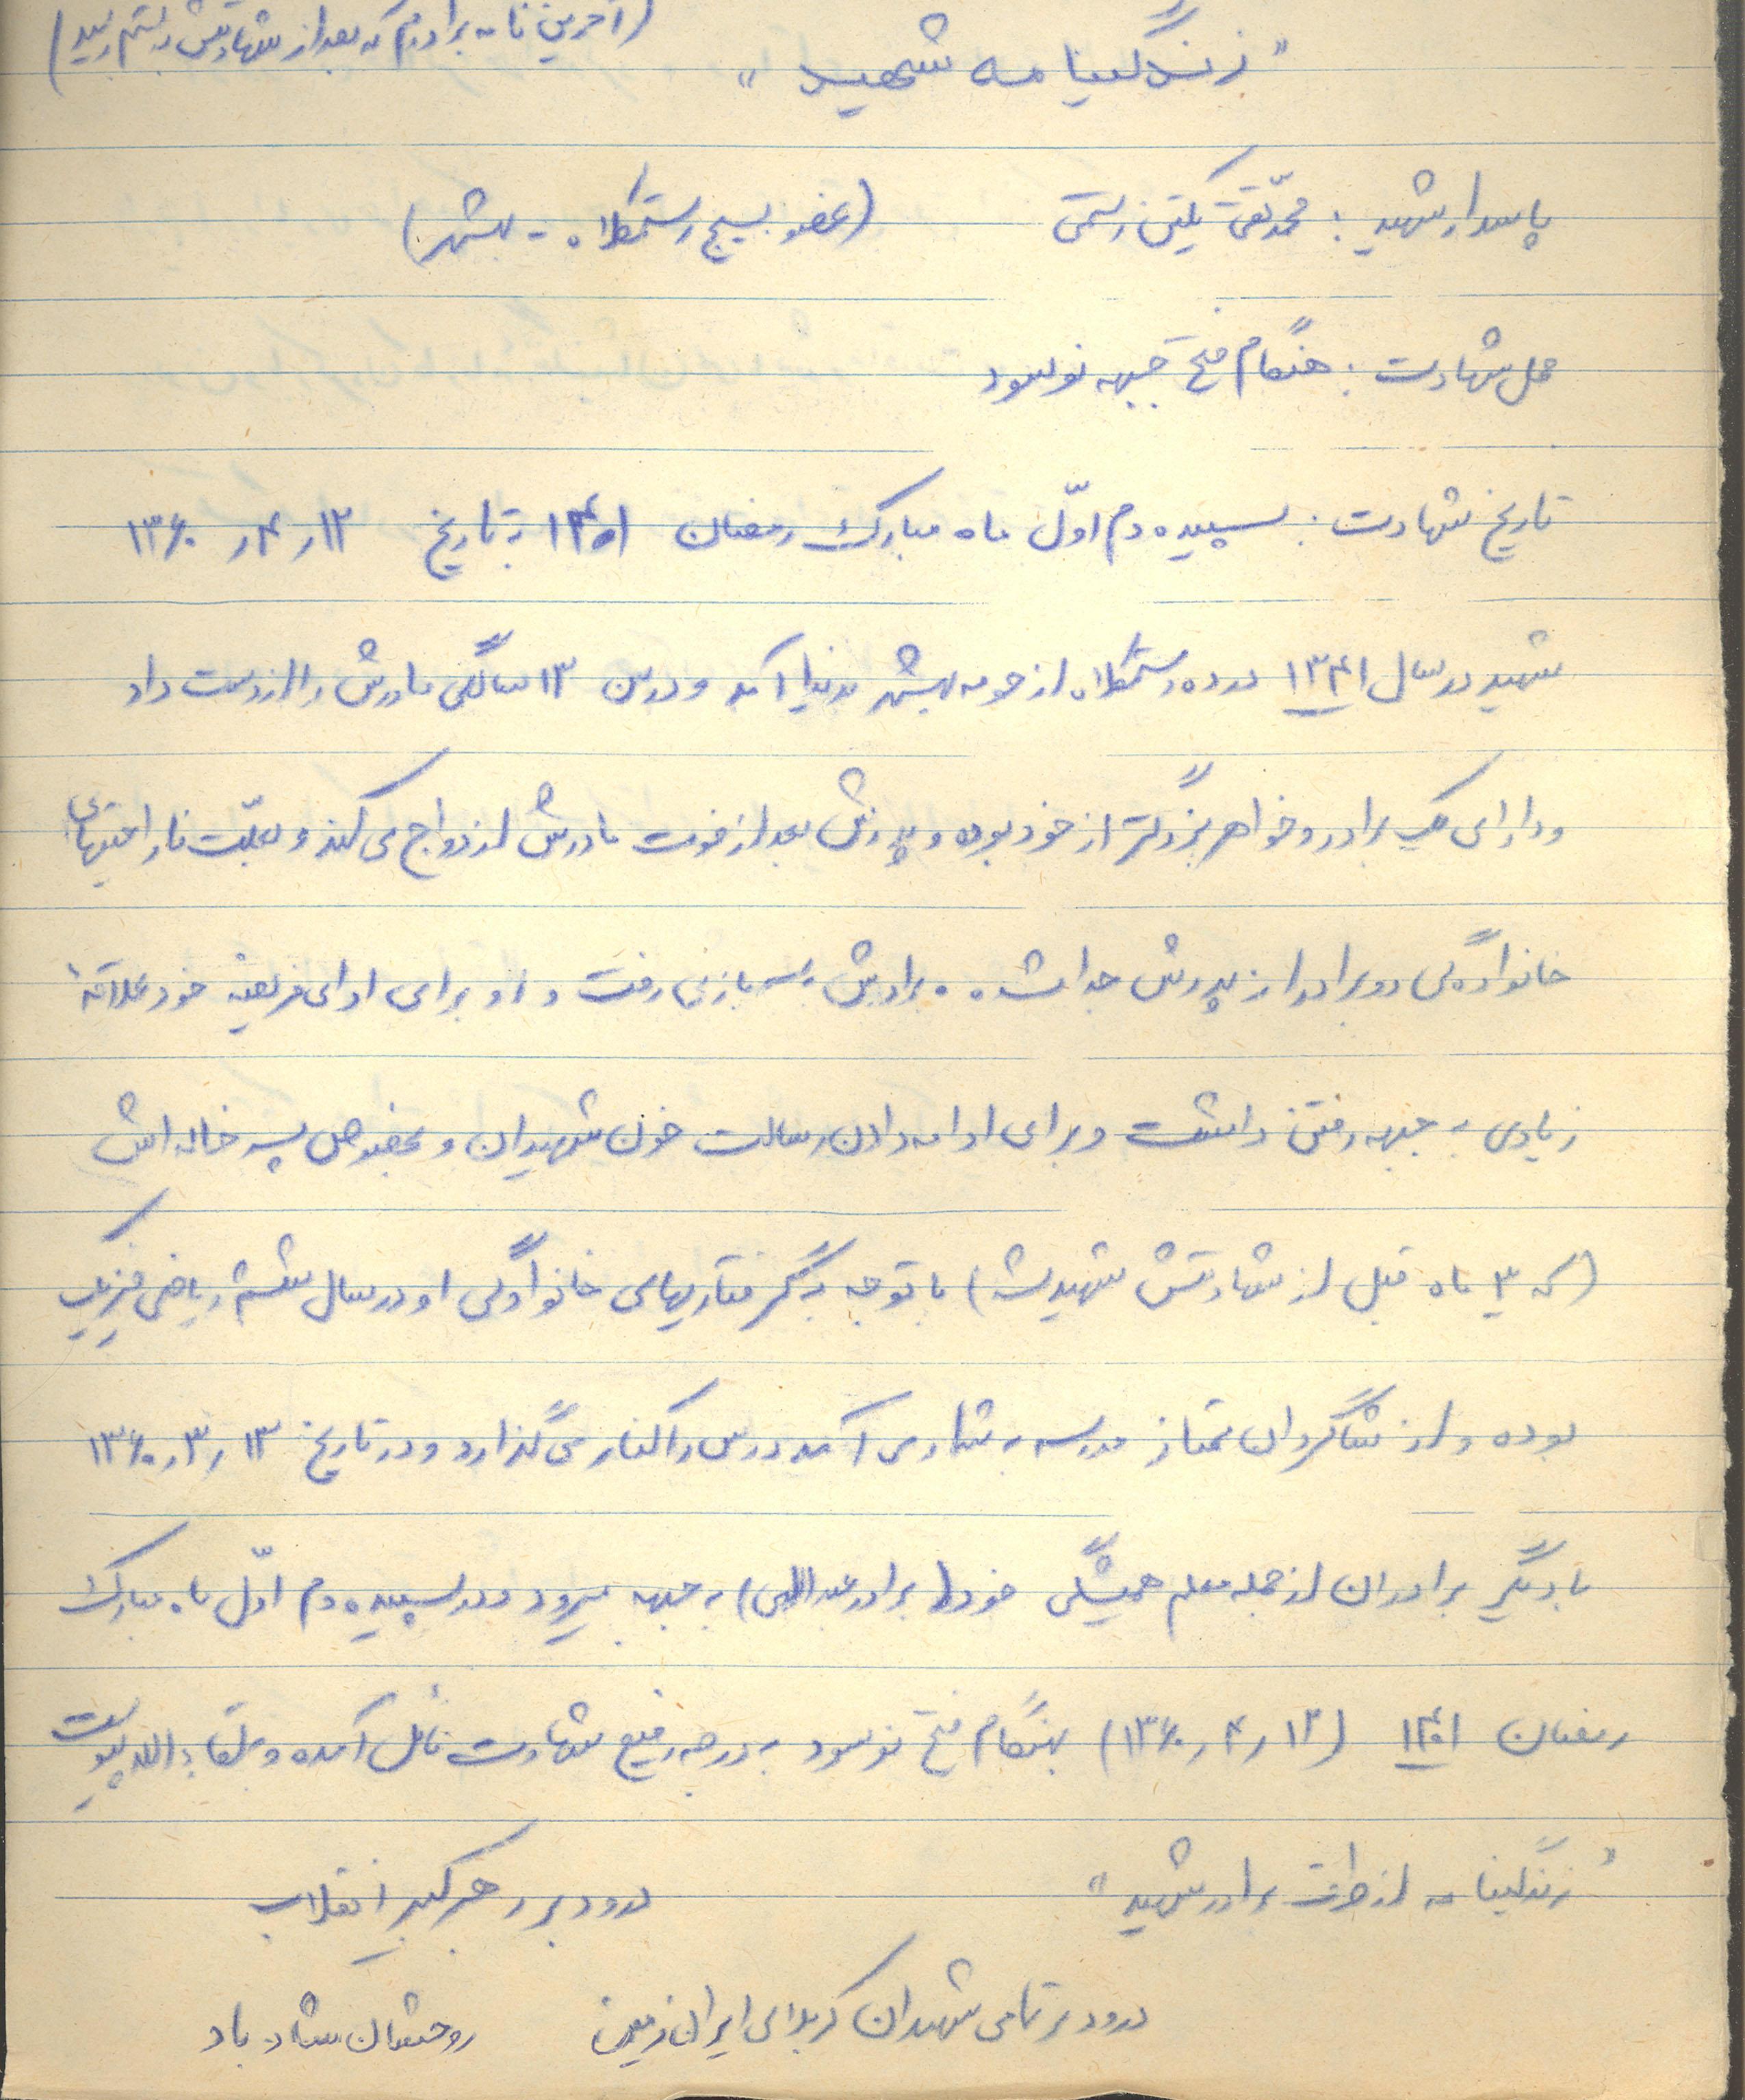 (آخرین نامه برادرم که بعد از شهادتش بدستم رسید)
"زندگینامه شهید"
پاسدار شهید : محمّدتقی یکتن رستمی (عضو بسیج رستمکلاه - بهشهر)
محل شهادت : هنگام فتح جبهه نوسود
تاریخ شهادت : سپیده دم اوّل ماه مبارک رمضان ۱۴۰۱ بتاریخ ۱۳ر۴ر۱۳۶۰
شهید در سال ۱۳۴۱ در ده رستمکلاه از حومه بهشهر بدنیا آمد و در سن ۱۳ سالگی مادرش را از دست داد
و دارای یک برادر و خواهر بزرگتر از خود بوده و پدرش بعد از فوت مادرش ازدواج می کند و بعلّت ناراحتیهای
خانوادگی دو برادر از پدرش جدا شده. برادرش بسربازی رفت و او برای ادای فریضه خود علاقهٔ
زیادی به جبهه رفتن داشت و برای ادامه دادن رسالت خون شهیدان و بخصوص پسر خاله اش
(که ۳ ماه قبل از شهادتش شهید شد) با توجه به گرفتاریهای خانوادگی او در سال ششم ریاضی فیزیک
بوده و از شاگردان ممتاز مدرسه بشمار می آمد درس را کنار می گذارد و در تاریخ ۱۳ر۳ر۱۳۶۰
با دیگر برادران از جمله معلم همیشگی خود (برادر عبداللهی) به جبهه میرود و در سپیده دم اوّل ماه مبارک
رمضان ۱۴۰۱ (۱۳ر۴ر۱۳۶۰) بهنگام فتح نوسود به درجه رفیع شهادت نائل آمده و بلقاءالله پیوست
"زندگینامه از طرف برادر شهید" درود بر رهبر کبیر انقلاب
درود بر تمامی شهیدان کربلای ایران زمین روحشان شاد باد